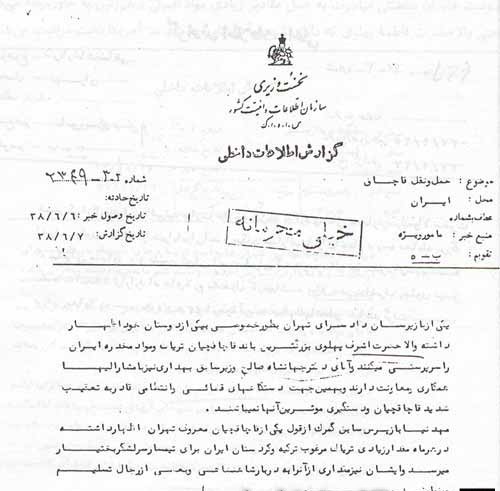 نخست وزیری
سازمان اطلاعات و امنیت کشور
س.ا.و.ا.ک
گزارش اطلاعات داخلی
موضوع : حمل و نقل قاچاق
محل : ایران
عطف بشماره
منبع خبر : مامور ویژه
تقویم : ب - ۵
شماره ۳۰۲
تاریخ حادثه:
تاریخ وصول خبر : ۳۸/۶/۶
تاریخ گزارش: ۳۸/۶/۷
خیلی محرمانه
یکی از بازپرسان دادسرای تهران بطور خصوصی بیکی از دوستان خود اظهار
داشته والاحضرت اشرف پهلوی بزرگترین باند قاچاقچیان تریاک و مواد مخدره ایران
را سرپرستی میکنند و آقای دکتر جهانشاه صالح وزیر سابق بهداری نیز با مشارالیها
همکاری و معاونت دارند و بهمین جهت دستگاههای قضائی و انتظامی قادر به تعقیب
شدید قاچاقچیان و دستگیری موثرین آنها نمیباشند .
مهدنیا بازپرس سابق گمرک از قول یکی از قاچاقچیان معروف تهران اظهار داشته
در هر ماه مقدار زیادی تریاک مرغوب ترکیه و کردستان ایران برای تیمسار سرلشگر بختیار
میرسد و ایشان نیز مقداری از آنرا به دربار شاهنشاهی و بعضی از رجال تسلیم